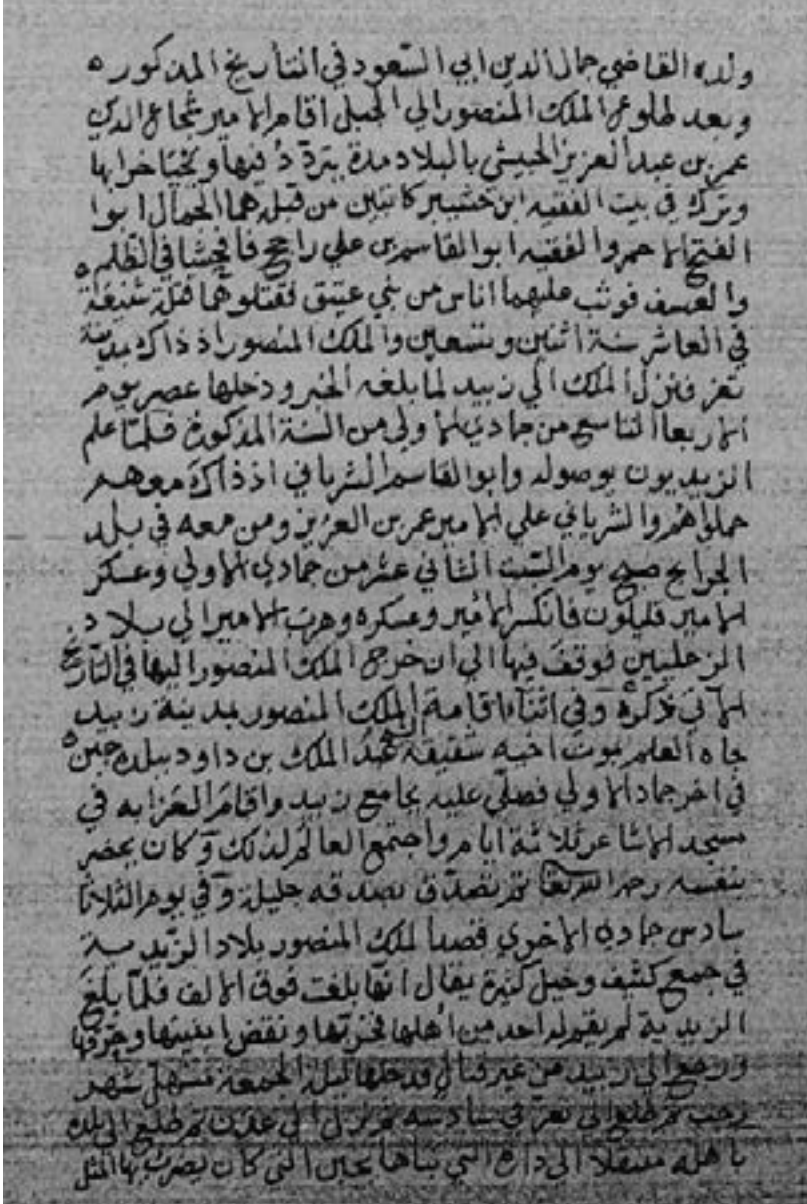 ولده القاضي جمال الدين ابي السعود في التاريخ المذكور ه
وبعد طلوع الملك المنصور الي الجبل اقام الامير شجاع الدين
عمر بن عبد العزيز الحبيشي بالبلاد مدة يتردد فيها ويجبا خراجها
وترك في بيت الفقيه ابن حشيبر كاتبين من قبله هما الجمال ابوا
الفتح الاحمر والفقيه ابو القاسم بن علي راجح فافحشا في الظلم ه
والعسف فوثب عليهما اناس من بني عتيق فقتلوهما قتلة شنيعة
في العاشر سنة اثنين وتسعين والملك المنصور اذ ذاك بمدينة
تعز فنزل الملك الي زبيد لما بلغه الخبر ودخلها عصر يوم
الاربعا التاسع من جمادي الاولي من السنة المذكورة فلما علم
الزيديون بوصوله وابو القاسم الشرياني اذ ذاك معهم
حملوا هم والشرياني علي الامير عمر بن العزيز ومن معه في بلد
الجرابح صبح يوم السبت الثاني عشر من جمادي الاولي وعسكر
الامير قليلون فانكسر الامير وعسكره وهرب الامير الي بلاد
الزعليين فوقف فيها الي ان خرج الملك المنصور اليها في التاريخ
الاتي ذكره وفي اثناء اقامة الملك المنصور بمدينة زبيد
جاه العلم بموت اخيه شقيقه الشيخ عبد الملك بن داود ببلده جبن ه
في اخر جماد الاولي فصلي عليه بجامع زبيد واقام العزا به في
مسجد الاشاعر ثلاثة ايام واجتمع العالم لذلك وكان يحضر
بنفسه رحمه الله تعا ثم تصدق بصدقه جليلة وفي يوم الثلاثا
سادس جمادي الاخري قصد الملك المنصور بلاد الزيدية
في جمع كثيف وخيل كثيرة يقال انها بلغت فوق الالف فلما بلغ
الزيدية لم يقم له احد من اهلها فخربها ونقض ابنيتها وحرقها
ورجع الي زبيد من غير قتال فدخلها ليلة الجمعة مستهل شهر
رجب ثم طلع الي تعز في سادسه ثم نزل الي عدن ثم طلع الي بلده
باهله متنقلا الي داره التي بناها بجبن التي كان يضرب بها المثل